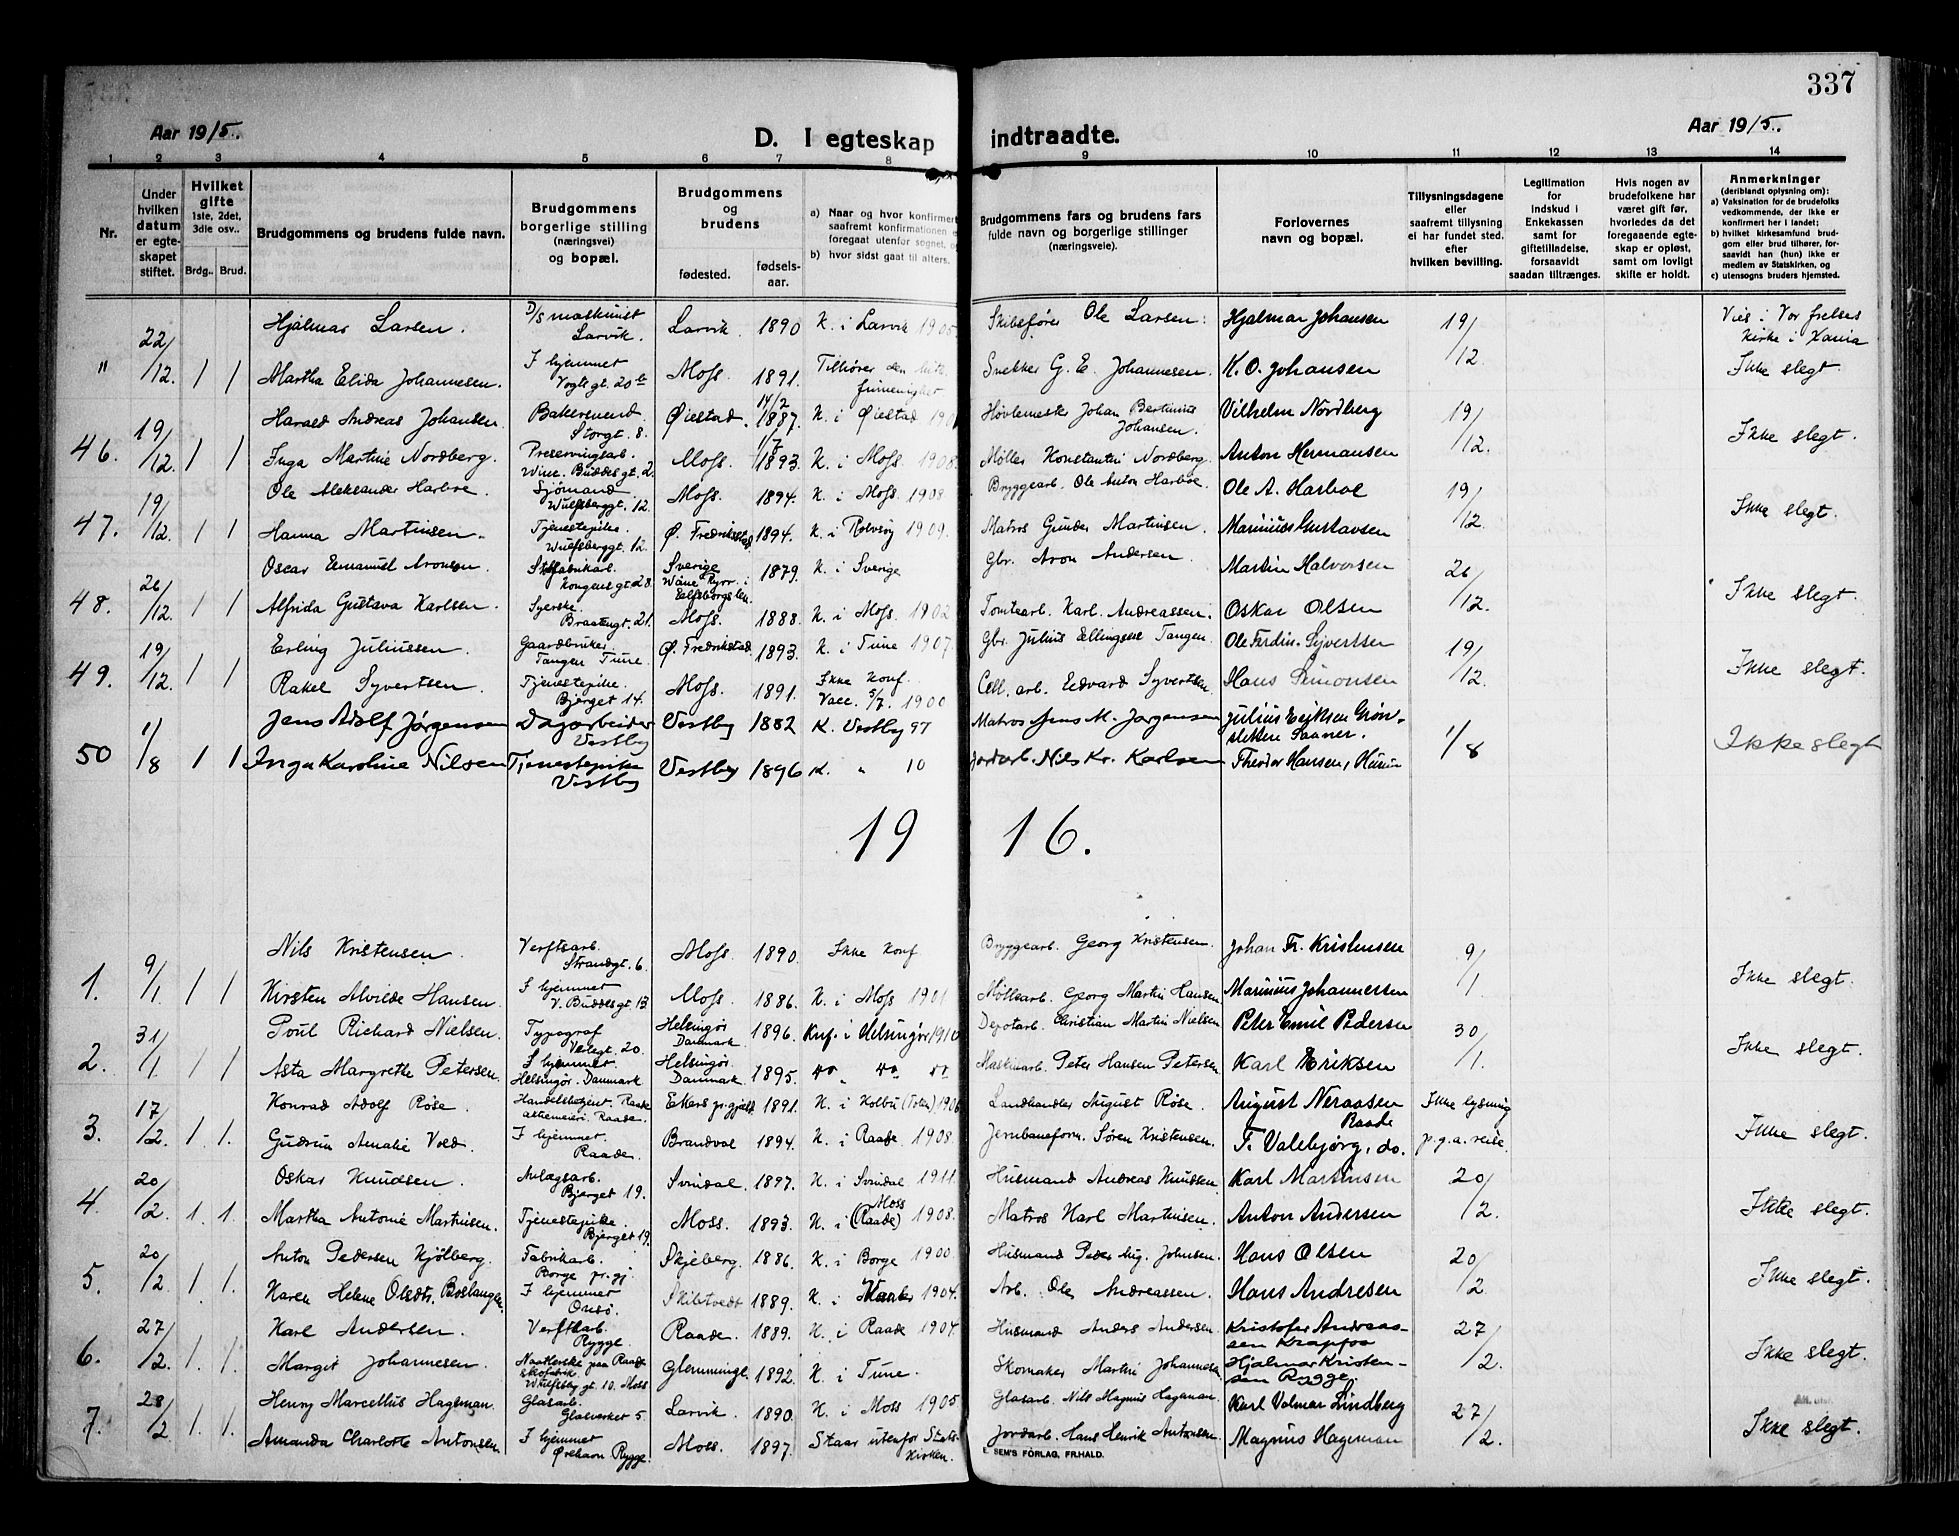 337
Aar 1915.
D. I egteskap indtraadte.
Aar 1915.
1 2 3 4 5 6 7 8 9 10 11 12 13 14
Nr.
Under hvilken datum er egteskapet stiftet.
Hvilket gifte 1ste, 2det, 3die osv..
Brdg.. Brud.
Brudgommens og brudens fulde navn.
Brudgommens borgerlige stilling (næringsvei) og bopæl.
Brudgommens og brudens
fødested. fødselsaar.
a) Naar og hvor konfirmert
b) hvor sidst gaat til alters.
Brudgommens fars og brudens fars fulde navn og borgerlige stillinger (næringsveie).
Forlovernes navn og bopæl.
Tillysningsdagene eller saafremt tillysning ei har fundet sted, efter hvilken bevilling.
Legitimation for indskud i Enkekassen samt for giftetilladelse, forsaavidt saadan tiltrænges.
Hvis nogen av brudefolkene har været gift før, hvorledes da det foregaaende egteskap er opløst, samt om lovligt skifte er holdt.
Anmerkninger (deriblandt oplysning om): a) Vaksination for de brudefolks vedkommende, der ikke er konfirmert her i landet; b) hvilket kirkesamfund brudgom eller brud tilhører, forsaavidt han (hun) ikke er medlem av Statskirken, og c) utensogns bruders hjemsted.
" 22/12. 1 1 Hjalmar Larsen. D/S maskinist Larvik. Larvik. 1890 K. i Larvik 1905 Skibsfører Ole Larsen. Hjalmar Johansen 19/12. Viet i Vor frelses Kirke i Xania
Martha Elida Johannesen. I hjemmet Vogts gt. 20 Moss. 1891. Tilhører den frimenighet Snekker G. E. Johannesen. K. O. Johansen Ikke slegt.
46. 19/12. 1 1 Harald Andreas Johansen Bakersvend. Storgt. 8. Øiestad. 14/2 1887. K. i Øiestad Høvlemester Johan Bertinius Johansen. Vilhelm Nordberg 19/12. Ikke slegt.
Inga Martine Nordberg. Preservingsarb. Wine. Buddes gt. 2. Moss 1/7 1893. K. i Moss 1908. Møller Konstantin Nordberg. Anton Hermansen
47. 19/12. 1 1 Ole Aleksander Harboe. Sjømand Wulfsberggt. 12. Moss. 1894. K. i Moss 1908 Bryggearb. Ole Anton Harboe Ole A. Harboe 19/12. Ikke slegt.
Hanna Martinsen. Tjenestepike. Wulfsberggt. 12. Ø. Fredrikstad 1894. K. i Rolvsøy 1909. Matros Gunder Martinsen. Marinius Gustavsen
48. 26/12. 1 1 Oscar Emanuel Aronsen. fabrikarb. Kongens gt. 28. Sverige 1879. K. i Sverige Gbr. Aron Andersen. Martin Halvorsen 26/12. Ikke slegt.
Alfrida Gustava Karlsen. Syerske Braatengt. 21. Moss. 1888. K. i Moss. 1902 Tomtearb. Karl Andreassen. Oskar Olsen
49. 19/12. 1 1 Erling Juliussen. Gaardbruker Tangen Tune. Ø. Fredrikstad 1893. K. i Tune 1907. Gbr. Julius Ellingsen Tangen Ole Ferdin. Syvertsen 19/12. Ikke slegt.
Rakel Syvertsen. Tjenestepike. Bjerget 14. Moss. 1891. Ikke konf. Vacc. 5/7. 1900 Cell. arb. Edvard Syvertsen. Hans Simonsen
50 1/8 1 1 Jens Adolf Jørgensen Dagarbeider Vestby Vestby 1882 K. Vestby 97 Matros Jens M. Jørgensen Julius Eriksen Grønsletten Saaner. 1/8 Ikke slegt
Inga Karoline Nilsen Tjenestepike Vestby Vestby 1896 K. " 10 Jordarb. Nils Kr. Karlsen Theodor Hansen,
19 16.
1. 9/1 1 1 Nils Kristensen. Verftsarb. Strandgt. 6. Moss. 1890. Ikke konf Bryggearb. Georg Kristensen. Johan Fr. Kristensen 9/1 Ikke slegt.
Kirsten Alvilde Hansen. I hjemmet V. Buddes gt. 13. Moss. 1886. K. i Moss 1901 Møllearb. Georg Martin Hansen Marinius Johannessen
2. 31/1 1 1 Poul Richard Nielsen. Typograf Verlegt. 20. Helsingør Danmark. 1896. Knf. i Helsingør 1910 Depotarb. Christian Martin Nielsen Peter Emil Pedersen 30/1. Ikke slegt.
Asta Margrethe Petersen. I hjemmet. Helsingør. Danmark Helsingør. Danmark. 1895. do do do Maskinarb. Peter Hansen Petersen Karl Eriksen
3. 17/2. 1 1. Konrad Adolf Røse. Handelsbetjent. Raade aktiemeieri. Raade. Ekers pr.gjeld 1891. K. i Kolbu (Toten) 1906 Landhandler August Røse. August Neraasen Raade Ikke lysning p.g.a. reise. Ikke slegt.
Gudrun Amalie Vold. I hjemmet. Raade. Brandval 1894. K. i Raade. 1908. Jernbaneform. Søren Kristensen. T. Valebjørg, do.
4. 20/2. 1. 1. Oskar Knudsen. Anlægsarb. Bjerget 19. Svindal. 1897. K. i Svindal 1911. Husmand Andreas Knudsen. Karl Martinsen 20/2. Ikke slegt.
Martha Antonie Martinsen. Tjenestepike. Bjerget 19. Moss. 1893. K. i Moss (Raade) 1908. Matros Karl Martinsen. Anton Andersen
5. 20/2 1 1. Anton Pedersen Kjølberg. Fabrikarb. Borge pr.gj. Skjeberg. 1886. K. i Borge 1900. Husmand Peder Aug. Johnsen. Hans Olsen 20/2. Ikke slegt.
Karen Helene Olsdtr. Boslangen. I hjemmet Onsø. Skibtvedt 1889. K. i 1904. Arb. Ole Andreassen. Hans Andresen
6. 27/2. 1. 1. Karl Andersen. Verftarb. Rygge. Raade. 1889. K. i Raade 1904. Husmand Anders Andersen. Kristofer Andreassen Krapfos 27/2. Ikke slegt.
Margit Johannesen. Naatlerske paa Raade skofabrik Wulfsbg gt. 10. Moss Glemminge 1892. K. i Tune. Skomaker Martin Johannesen Hjalmar Kristensen Rygge.
7. 28/2 1. 1. Henry Marcellus Hageman. Glasarb. Glasverket 5. Larvik. 1890. K. i Moss 1905 Glasarb. Nils Magnus Hageman Karl Valmar Lindberg 27/2. Ikke slegt.
Amanda Charlotte Antonsen. I hjemmet Ørehavn Rygge. Moss. 1897. Staar utenfor Statskirken. Jordarb. Hans Henrik Antonsen. Magnus Hageman
SEM'S FORLAG, FR.HALD.